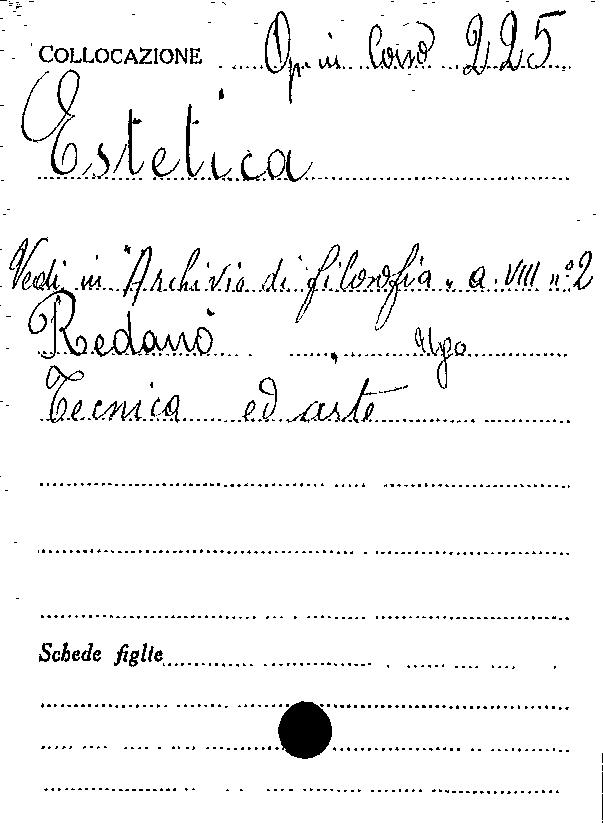 COLLOCAZIONE Op. in Corso 225
Estetica
Vedi in "Archivio di filosofia" a. VIII n° 2
Redanò Ugo
Tecnica ed arte
Schede figlie